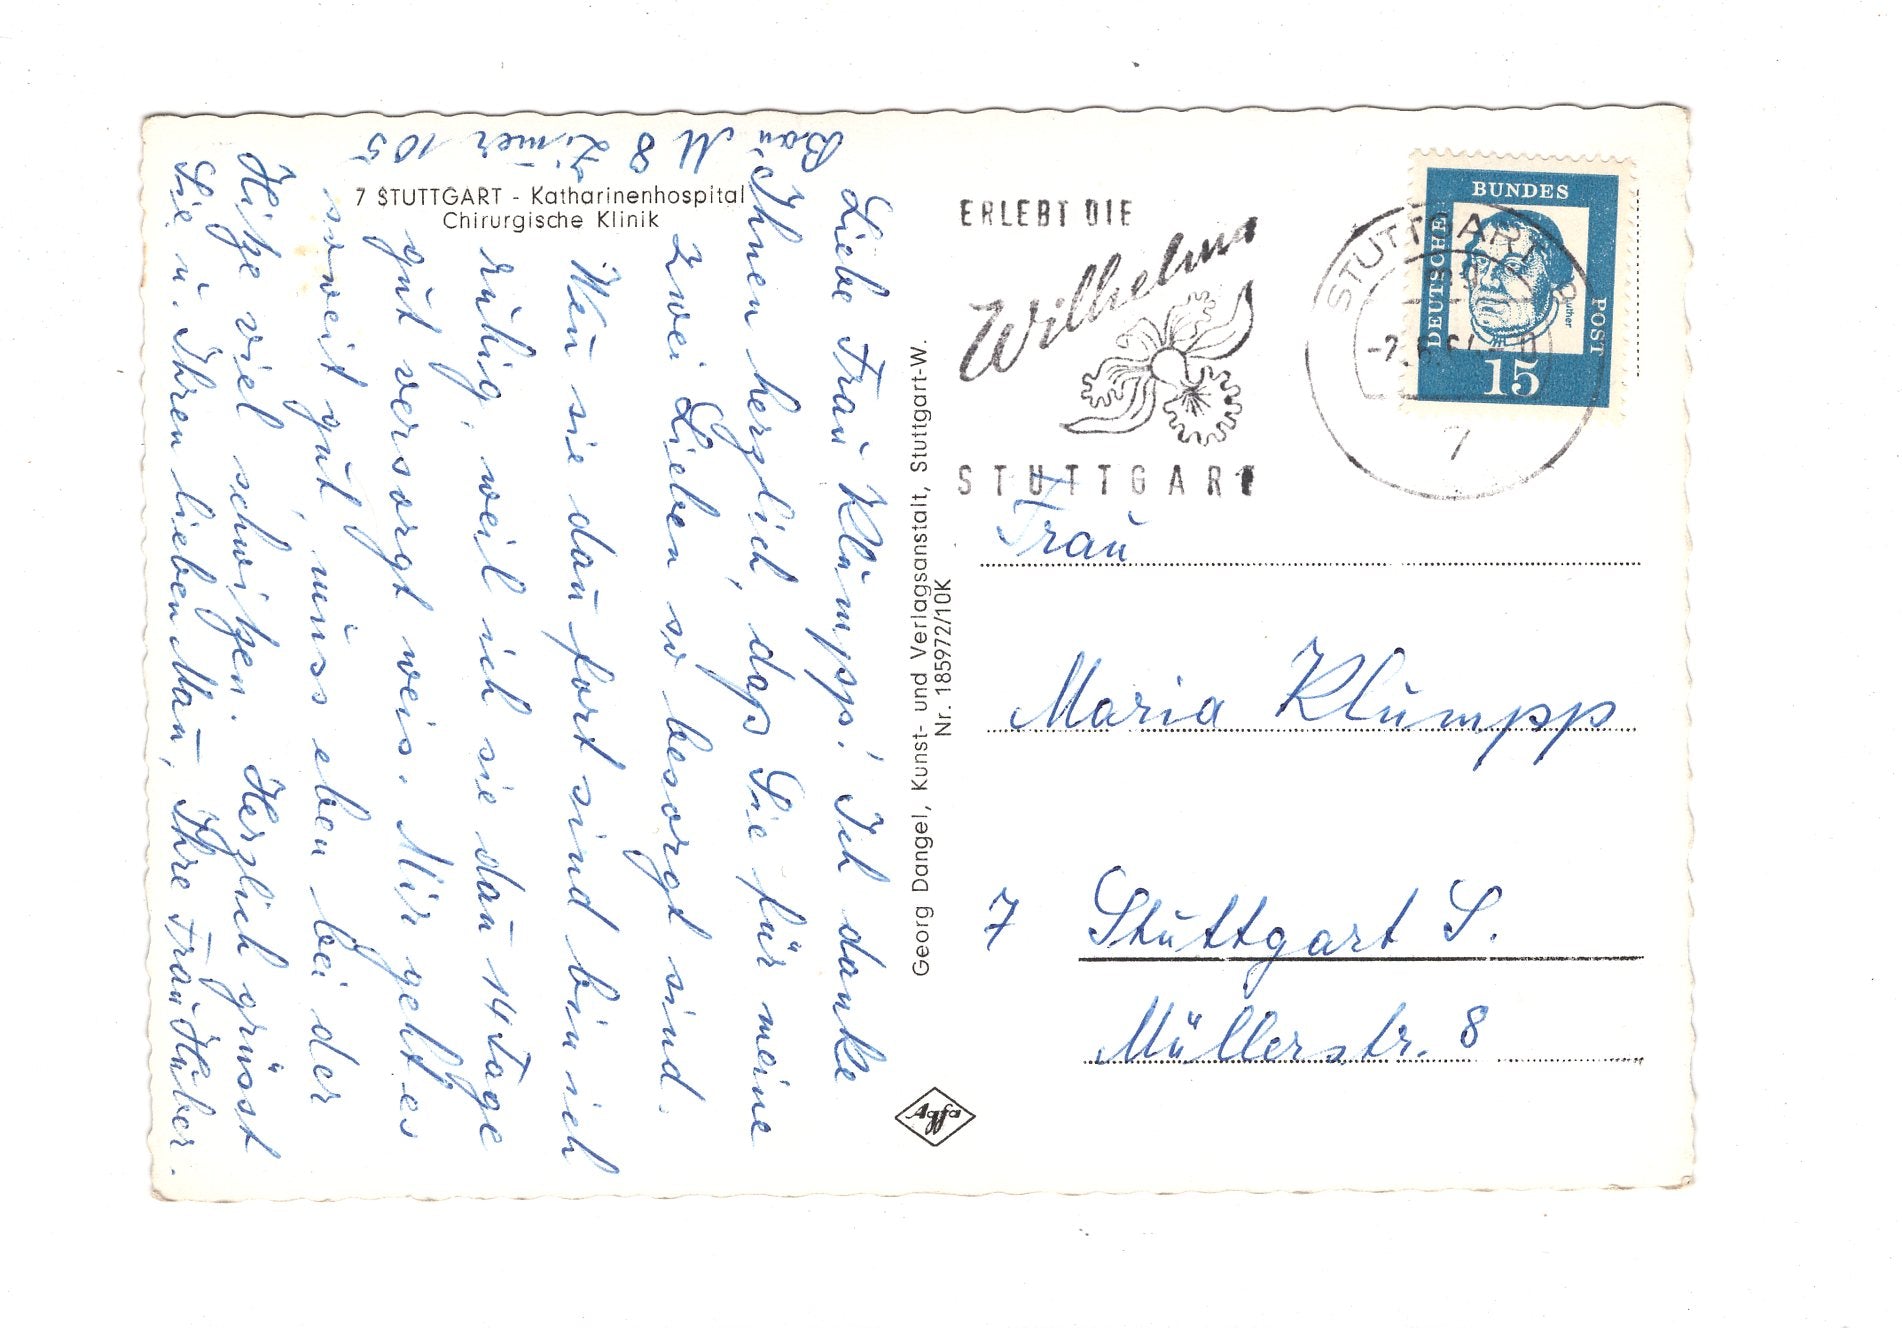 7 STUTTGART - Katharinenhospital
Chirurgische Klinik
Bau M 8 Zimer 105
Liebe Frau Klumpp! Ich danke
Ihnen herzlich, daß Sie für meine
zwei Lieben so besorgt sind.
Wen̄ sie dan̄ fort sind bin ich
ruhig, weil ich sie dan̄ 14 Tage
gut versorgt weis. Mir geht es
soweit gut, muss eben bei der
Hitze viel schwitzen. Herzlich grüsst
Sie u. Ihren lieben Man̄, Ihre Frau Huber.
Georg Dangel, Kunst- und Verlagsanstalt, Stuttgart-W.
Nr. 185972/10K
Agfa
ERLEBT DIE
Wilhelma
STUTTGART
STUTTGART
7
DEUTSCHE
BUNDES
POST
Luther
15
Frau
Maria Klumpp
7 Stuttgart S.
Müllerstr. 8